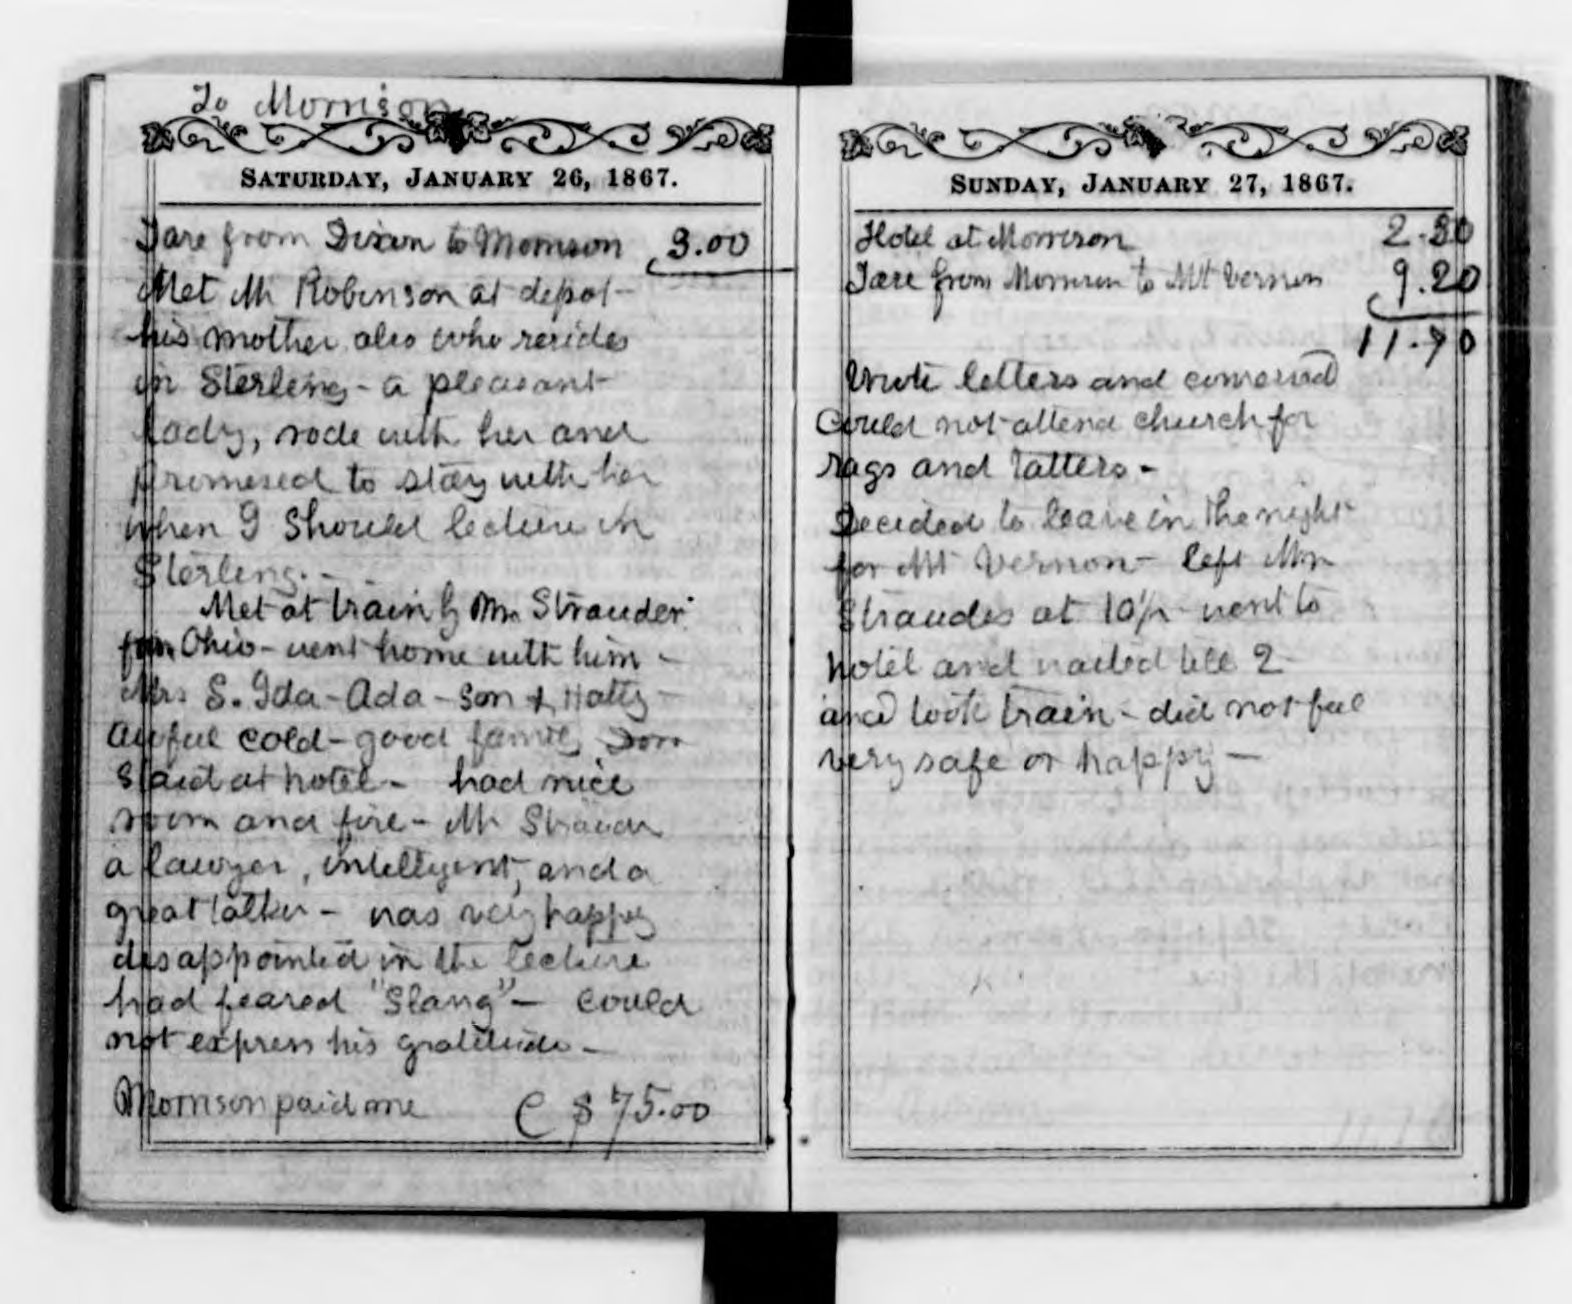 To Morrison
SATURDAY, JANUARY 26, 1867.
Fare from Dixon to Morrison 3.00
Met Mr Robinson at depot-
his mother also who resides
in Sterling - a pleasant
lady, rode with her and
promised to stay with her
when I should lecture in
Sterling. -
Met at train by Mr. Strauder
from Ohio - went home with him -
Mrs S. Ida - Ada - son & Hatty -
awful cold - good
staid at hotel - had nice
room and fire - Mr
a lawyer, intelligent, and a
great talker - was very happy
disappointed in the lecture
had feared "Slang" - could
not express his gratitude -
Morrison paid me $75.00
SUNDAY, JANUARY 27, 1867.
Hotel at Morrison 2.50
Fare from Morrison to Mt Vernon 9.20
11.70
Wrote letters and conversed
Could not attend church for
rags and tatters -
Decided to leave in the night
for Mt Vernon - left Mr
at 10 - went to
hotel and waited till 2
and took train - did not feel
very safe or happy -